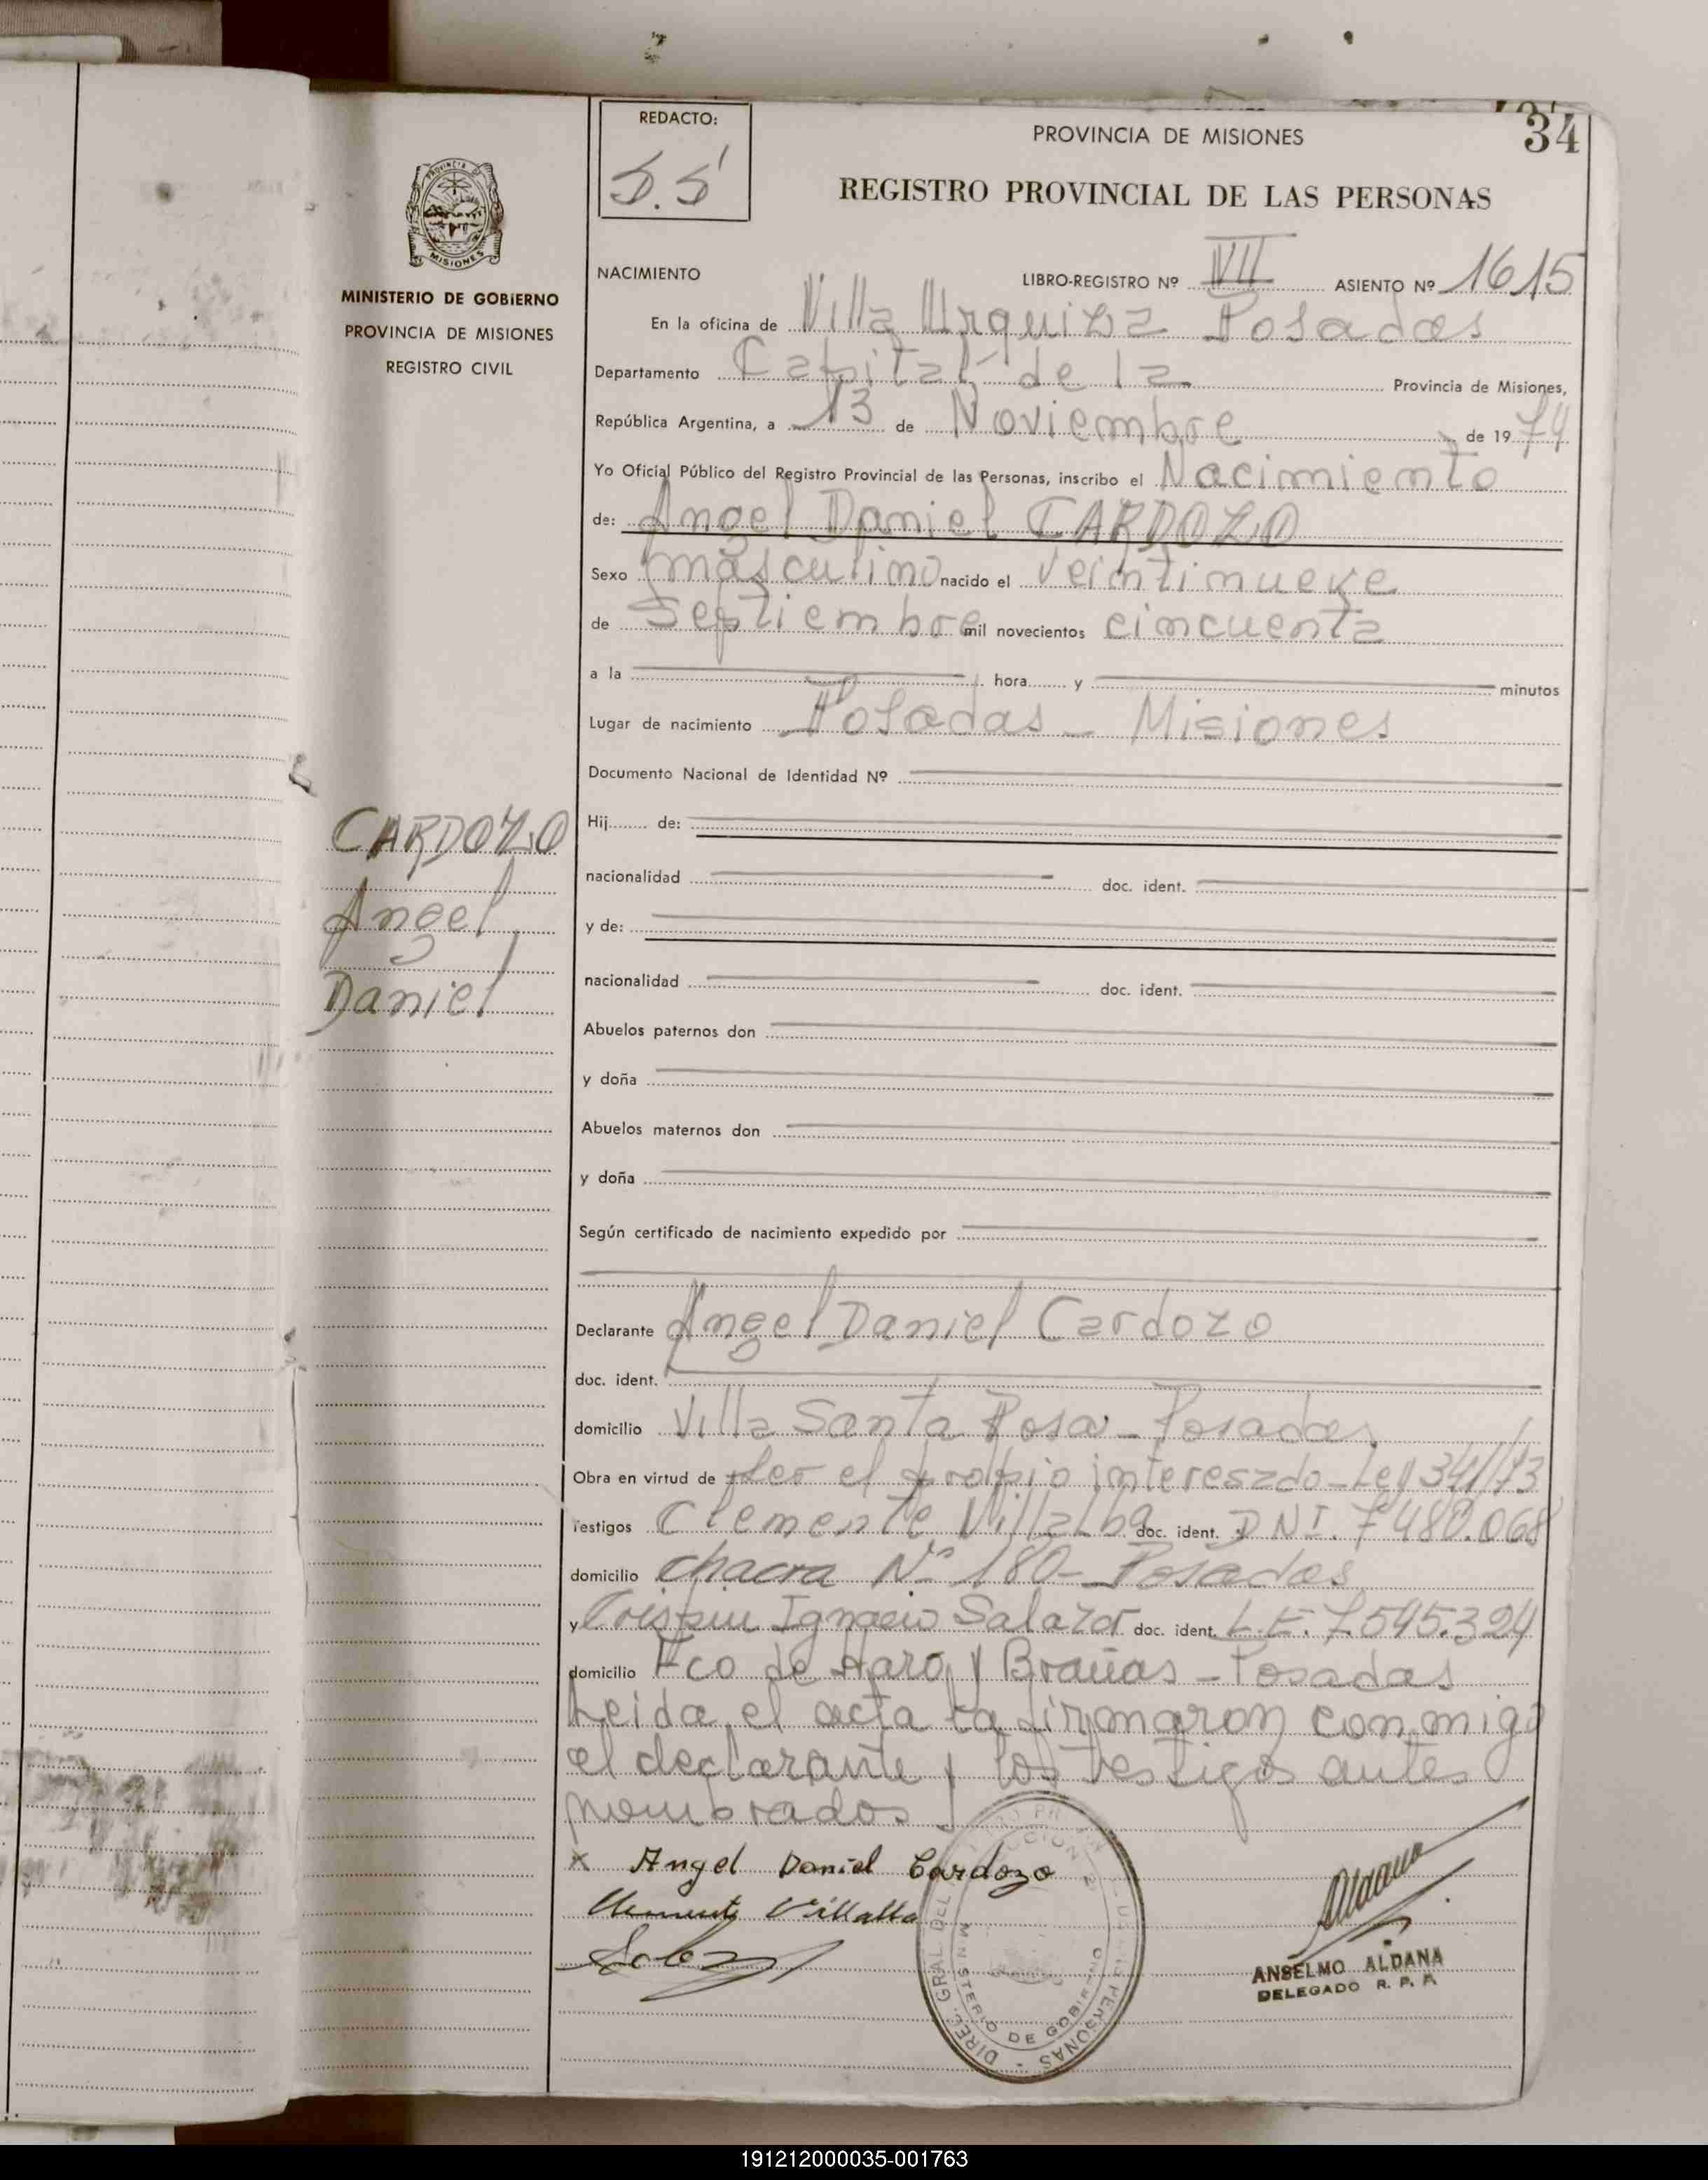 REDACTO:
S.S
PROVINCIA DE MISIONES
34
REGISTRO PROVINCIAL DE LAS PERSONAS
PROVINCIA DE
MISIONES
MINISTERIO DE GOBIERNO
PROVINCIA DE MISIONES
REGISTRO CIVIL
NACIMIENTO LIBRO-REGISTRO Nº VII ASIENTO Nº 1615
En la oficina de Villa Urquiza Posadas
Departamento Capital de la Provincia de Misiones,
República Argentina, a 13 de Noviembre de 1974
Yo Oficial Público del Registro Provincial de las Personas, inscribo el Nacimiento
de: Angel Daniel CARDOZO
Sexo masculino nacido el veintinueve
de Septiembre mil novecientos cincuenta
a la hora y minutos
Lugar de nacimiento Posadas - Misiones
Documento Nacional de Identidad Nº
Hij de:
nacionalidad doc. ident.
y de:
nacionalidad doc. ident.
CARDOZO
Angel
Daniel
Abuelos paternos don
y doña
Abuelos maternos don
y doña
Según certificado de nacimiento expedido por
Declarante Angel Daniel Cardozo
doc. ident.
domicilio Villa Santa Rosa - Posadas
Obra en virtud de ser el propio interesado - Ley 341/73
Testigos Clemente Villalba doc. ident. DNI. 7480.068
domicilio chacra Nº 180 - Posadas
y Crispin Ignacio Salazar doc. ident. L.E. 7.545.324
domicilio Fco de Haro y Brañas - Posadas
Leida el acta la firmaron conmigo
el declarante y los testigos antes
nombrados
x Angel Daniel Cardozo
Clemente Villalba
DIREC. GRAL. DEL
PERSONAS
MINISTERIO DE GOBIERNO
ANSELMO ALDANA
DELEGADO R. P. P.
191212000035-001763